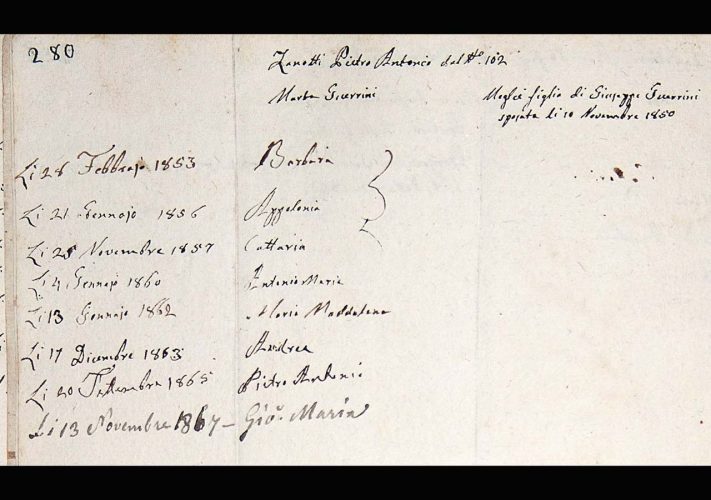 280
Zanotti Pietro Antonio dal No. 102
Marta Guerrini Moglie figlia di Giuseppe Guerrini
sposata li 10 Novembre 1850
Li 28 Febbrajo 1853 Barbara
Li 21 Gennajo 1856 Appolonia
Li 25 Novembre 1857 Cattaria
Li 4 Gennajo 1860 Antonio Maria
Li 13 Gennajo 1862 Maria Maddalena
Li 17 Dicembre 1863 Andrea
Li 20 Settembre 1865 Pietro Antonio
Li 13 Novembre 1867 – Gio. Maria